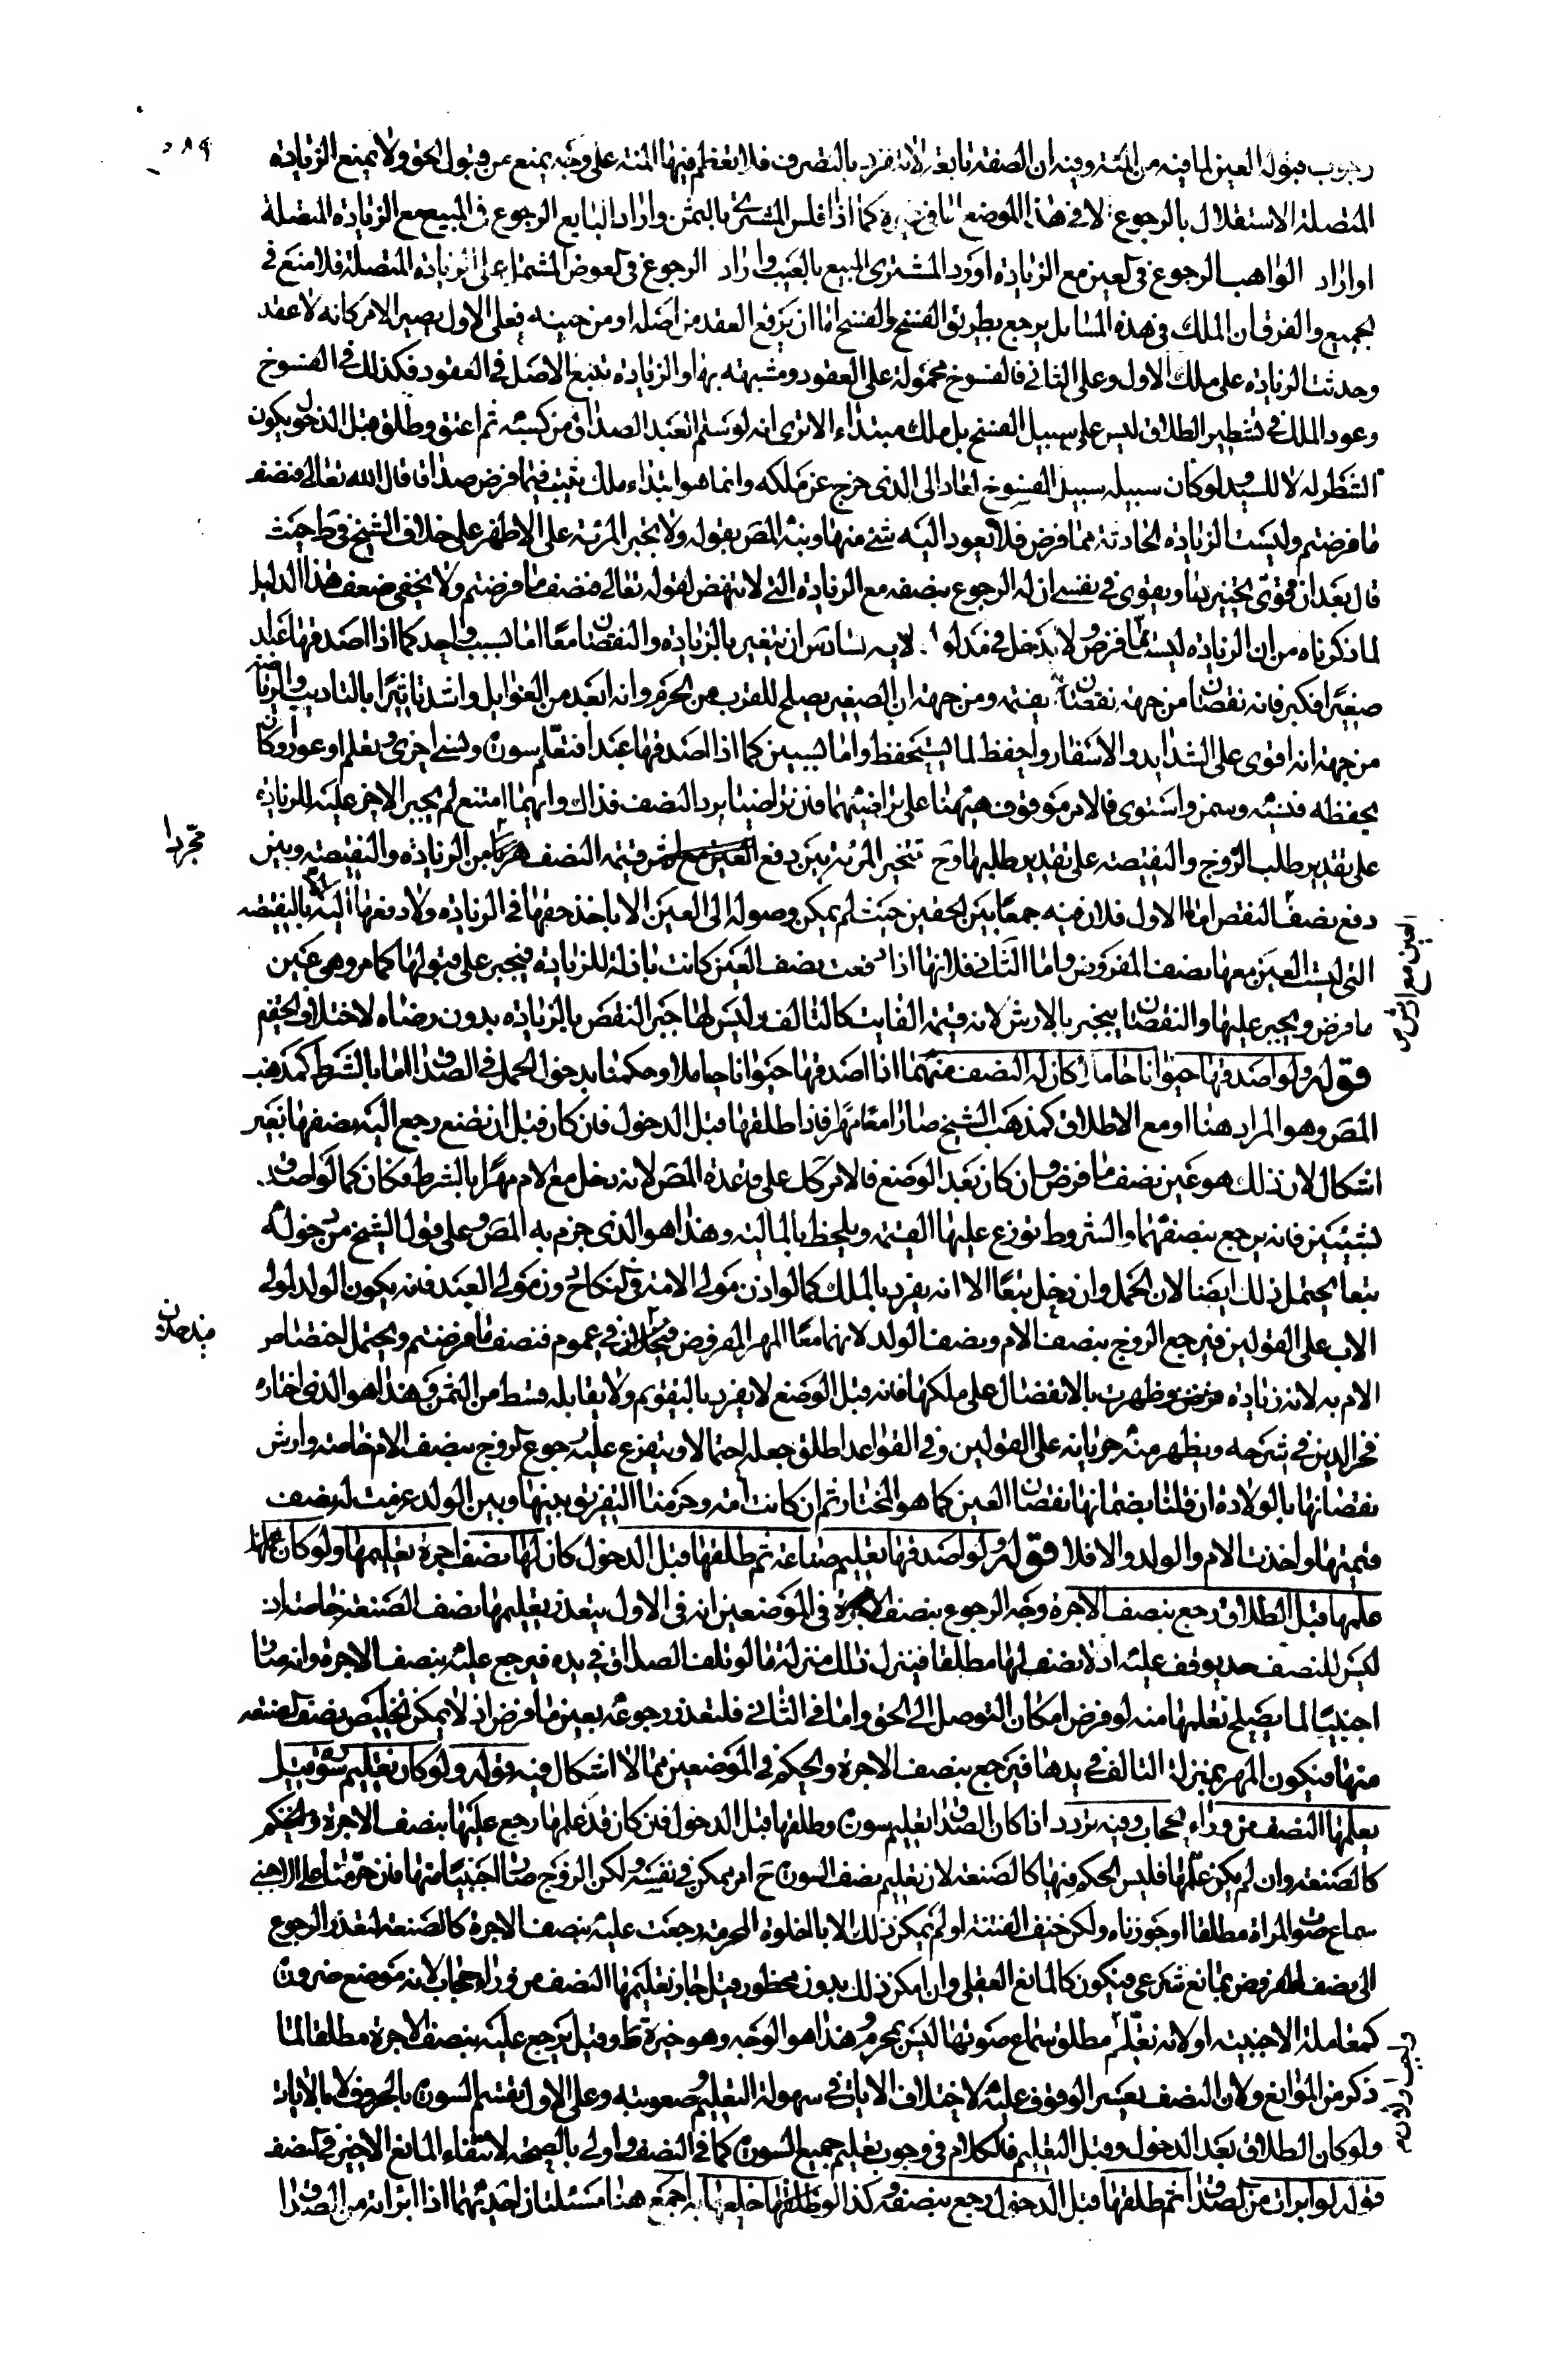 وجوب قبوله العين لما فيه من المنة وفيه ان الصفة تابعة لا تفرد بالتصرف فلا تعظم فيها المنة على وجه يمنع من قبول الحق ولا يمنع الزيادة
المتصلة الاستقلال بالرجوع الا في هذا الموضع اما في غيره كما اذا افلس المشتري بالثمن واراد البايع الرجوع في المبيع مع الزيادة المتصلة
او اراد الواهب الرجوع في العين مع الزيادة او رد المشتري المبيع بالعيب واراد الرجوع في العوض المشتمل على الزيادة المتصلة فلا منع في
الجميع والفرق ان الملك في هذه المسايل يرجع بطريق الفسخ والفسخ اما ان يرفع العقد من اصله او من حينه فعلى الاول يصير الامر كانه لا عقد
وحدثت الزيادة على ملك الاول وعلى الثاني فالفسوخ محمولة على العقود ومشبهة بها والزيادة تتبع الاصل في العقود فكذلك في الفسوخ
وعود الملك في تشطير الطلاق ليس على سبيل الفسخ بل ملك مبتداء الا ترى انه لو سلم العبد الصداق من كسبه ثم اعتق وطلق قبل الدخول يكون
الشطر له لا للسيد ولو كان سبيله سبيل الفسوخ لعاد الى الذي خرج عن ملكه وانما هو ابتداء ملك يثبت فيما فرض صداقا قال الله تعالى فنصف
ما فرضتم وليست الزيادة الحادثة مما فرض فلا يعود اليه شئ منها ونبه المص بقوله ولا تجبر المرئة على الاظهر على خلاف الشيخ في ط حيث
قال بعد ان قوى تخييرها ويقوى في نفسي ان له الرجوع بنصفه مع الزيادة التي لا تنهض لقوله تعالى فنصف ما فرضتم ولا يخفى ضعف هذا الدليل
لما ذكرناه من ان الزيادة ليست مما فرض ولا تدخل في مدلو السادس ان يتغير بالزيادة والنقصان معا اما بسبب واحد كما اذا اصدقها عبدا
صغيرا فكبر فانه نقصان من جهة نقصان قيمته ومن جهة ان الصغير يصلح للقرب من الحرم وانه ابعد من الغوايل واشد تاثيرا بالتاديب والرياضة
من جهة انه اقوى على الشدايد والاسفار واحفظ لما يستحفظ واما بسببين كما اذا اصدقها عبدا فتعلم سورة ونسي اخرى وتعلم او عور وكان
يحفظه فنسيه وسمن واستوى فالامر موقوف ههنا على تراضيهما فان تراضيا برد النصف فذاك وايهما امتنع لم يجبر الاخر عليه للزيادة
على تقدير طلب الزوج والنقيصة على تقدير طلبها وح تتخير المرئة بين دفع قيمة النصف مجردا من الزيادة والنقيصة وبين
دفع نصف العين مع ارش النقص اما الاول فلان فيه جمعا بين الحقين حيث لم يمكن وصوله الى العين الا باخذ حقها في الزيادة ولا دفعها اليه بالنقيصة
التي ليست العين معها نصف المفروض واما الثاني فلانها اذا دفعت نصف العين كانت باذلة للزيادة فيجبر على قبولها كما مر وهي عين
ما فرض ويجبر عليها والنقصان ينجبر بالارش لانه قيمة الفايت كالتالف وليس لها جبر النقص بالزيادة بدون رضاه لاختلاف الحق
قوله ولو اصدقها حيوانا حاملا كان له النصف منهما اذا اصدقها حيوانا حاملا وحكمنا بدخول الحمل في الصداق اما بالشرط كمذهب
المص وهو المراد هنا او مع الاطلاق كمذهب الشيخ صارا معا مهرا فاذا طلقها قبل الدخول فان كان قبل ان تضع رجع اليه نصفها بغير
اشكال لان ذلك هو عين نصف ما فرض وان كان بعد الوضع فالامر كك على قاعدة المص لانه دخل مع الام مهرا بالشرط فكان كما لو اصدق
شيئين فانه يرجع بنصفهما والشروط توزع عليها القيمة ويلحظ بالمالية وهذا هو الذي جزم به المص وعلى قول الشيخ من دخوله
تبعا يحتمل ذلك ايضا لان الحمل وان دخل تبعا الا انه يفرد بالملك كما لو اذن مولى الامة في النكاح دون مولى العبد فانه يكون الولد لمولى
الاب على القولين فيرجع الزوج بنصف الام ونصف الولد لانهما معا المهر المفروض فيدخلان في عموم فنصف ما فرضتم ويحتمل اختصاص
الام به لانه زيادة ظهرت بالانفصال على ملكها فانه قبل الوضع لا يفرد بالتقويم ولا يقابله قسط من الثمن وهذا هو الذي اختاره
فخر الدين في شرحه ويظهر منه جريانه على القولين وفي القواعد اطلق جعله احتمالا ويتفرع عليه رجوع الزوج بنصف الام خاصة وارش
نقصانها بالولادة ان قلنا بضمانها نقصان العين كما هو المختار ثم ان كانت امة وحرمنا التفريق بينها وبين الولد غرمت له نصف
قيمتها واخذت الام والولد والا فلا قوله ولو اصدقها تعليم صناعة ثم طلقها قبل الدخول كان لها نصف اجرة تعليمها ولو كان علمها
علمها قبل الطلاق رجع بنصف الاجرة وجه الرجوع بنصف الاجرة في الموضعين انه في الاول يتعذر تعليمها نصف الصنعة خاصة اذ
ليس للنصف حد يوقف عليه اذ لا نصف لها مطلقا فينزل ذلك منزلة ما لو تلف الصداق في يده فيرجع عليه بنصف الاجرة وانه صار
اجنبيا لما يصلح تعلمها منه لو فرض امكان التوصل الى الحق واما في الثاني فلتعذر رجوعه بعين ما فرض اذ لا يمكن تخليص نصف الصنعة
منها فيكون المهر بمنزلة التالف في يدها فيرجع بنصف الاجرة والحكم في الموضعين مما لا اشكال فيه قوله ولو كان تعليم سورة قيل
يعلمها النصف من وراء الحجاب وفيه تردد اذا كان الصداق تعليم سورة وطلقها قبل الدخول فان كان قد علمها رجع عليها بنصف الاجرة والحكم
كالصنعة وان لم يكن علمها فليس الحكم فيها كالصنعة لان تعليم نصف السورة ح امر يمكن في نفسه ولكن الزوج صار اجنبيا منها فان حرمنا على الاجنبي
سماع صوت المراة مطلقا او جوزناه ولكن خيف الفتنة او لم يمكن ذلك الا بالخلوة المحرمة رجعت عليه بنصف الاجرة كالصنعة لتعذر الرجوع
الى نصف المفروض بمانع شرعي فيكون كالمانع العقلي وان امكن ذلك بدون محظور قيل جاز تعليمها النصف من وراء حجاب لانه موضع ضرورة
كمعاملة الاجنبية او لانه تعلم مطلق سماع صوتها ليس بمحرم وهذا هو الوجه وهو خيرة ط وقيل يرجع عليه بنصف الاجرة مطلقا لما
ذكر من الموانع ولان النصف يعسر الوقوف عليه لاختلاف الايات في سهولة التعليم وصعوبته وعلى الاول يقسم السورة بالحروف لا بالايات
ولو كان الطلاق بعد الدخول وقبل التعليم فالكلام في وجوب تعليم جميع السورة كما في النصف واولى بالصحة لانتفاء المانع الاخير في النصف
قوله لو ابراته من الصداق ثم طلقها قبل الدخول رجع بنصفه وكذا لو خلعها به اجمع هنا مسئلتان احديهما اذا ابراته من الصداق
مجردا
العين مع ارش